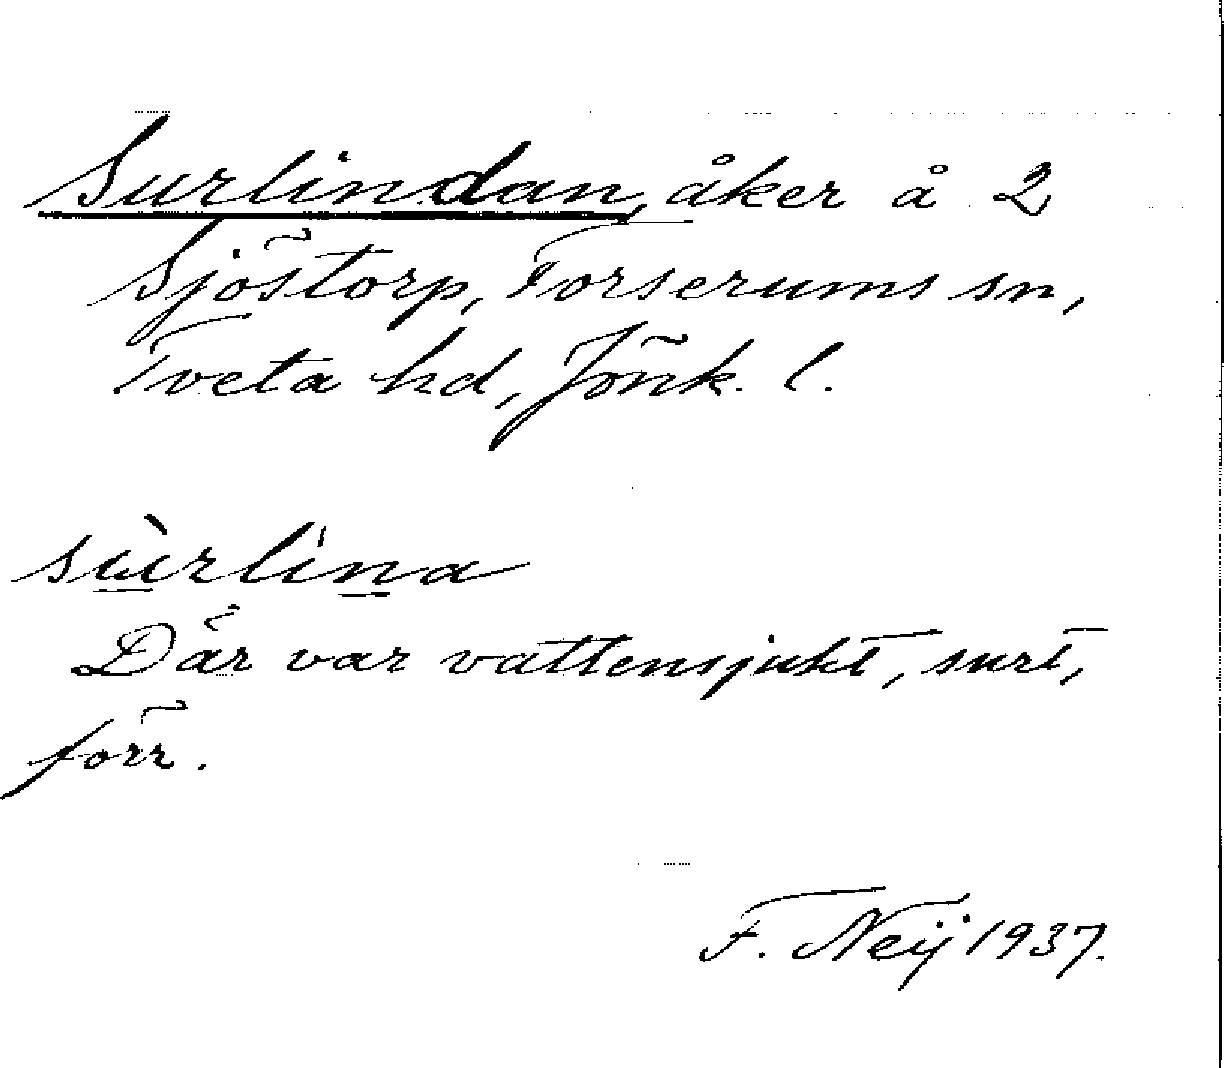 Surlindan, åker å 2
Sjöstorp, Forserums sn,
Tveta hd, Jönk. l.
sùrlina
Där var vattensjukt, surt,
förr.
F. Neij 1937.